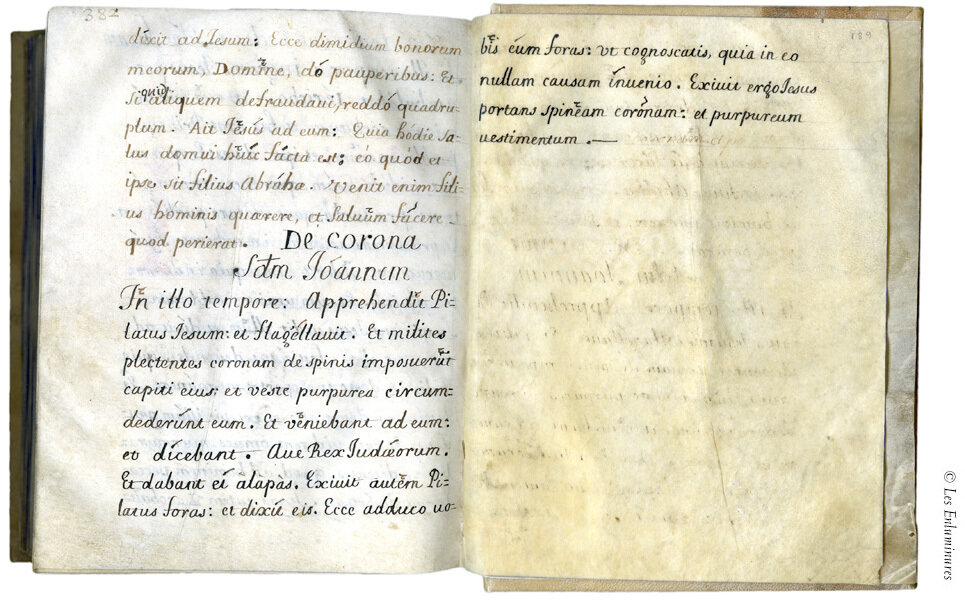 382
dixit ad Iesum: Ecce dimidium bonorum
meorum, Domine, dó pauperibus: Et
si quid aliquem defraudaui, reddó quadru-
plum. Ait Iesús ad eum: Quia hódie sa-
lus domui húic fácta est; eó quód et
ipse sit filius Abráhæ. Venit enim fili-
us hóminis quærere, et saluum fácere
quod perierat. De corona
Sdm Ióannem
In illo tempore: Apprehendit Pi-
latus Iesum: et flagellauit. Et milites
plectentes coronam de spinis imposuerut
capiti eius: et veste purpurea circum-
dederúnt eum. Et véniebant ad eum:
et dícebant. Aue Rex Iudæorum.
Et dabant eí álapas. Exiuit autem Pi-
latus foras: et dixít eis. Ecce adduco uo-
189
bis eúm foras: vt cognoscatis, quia in eo
nullam causam ínuenio. Exiuit ergo Iesus
portans spineam corónam: et purpureum
uestimentum.
© Les Enluminures